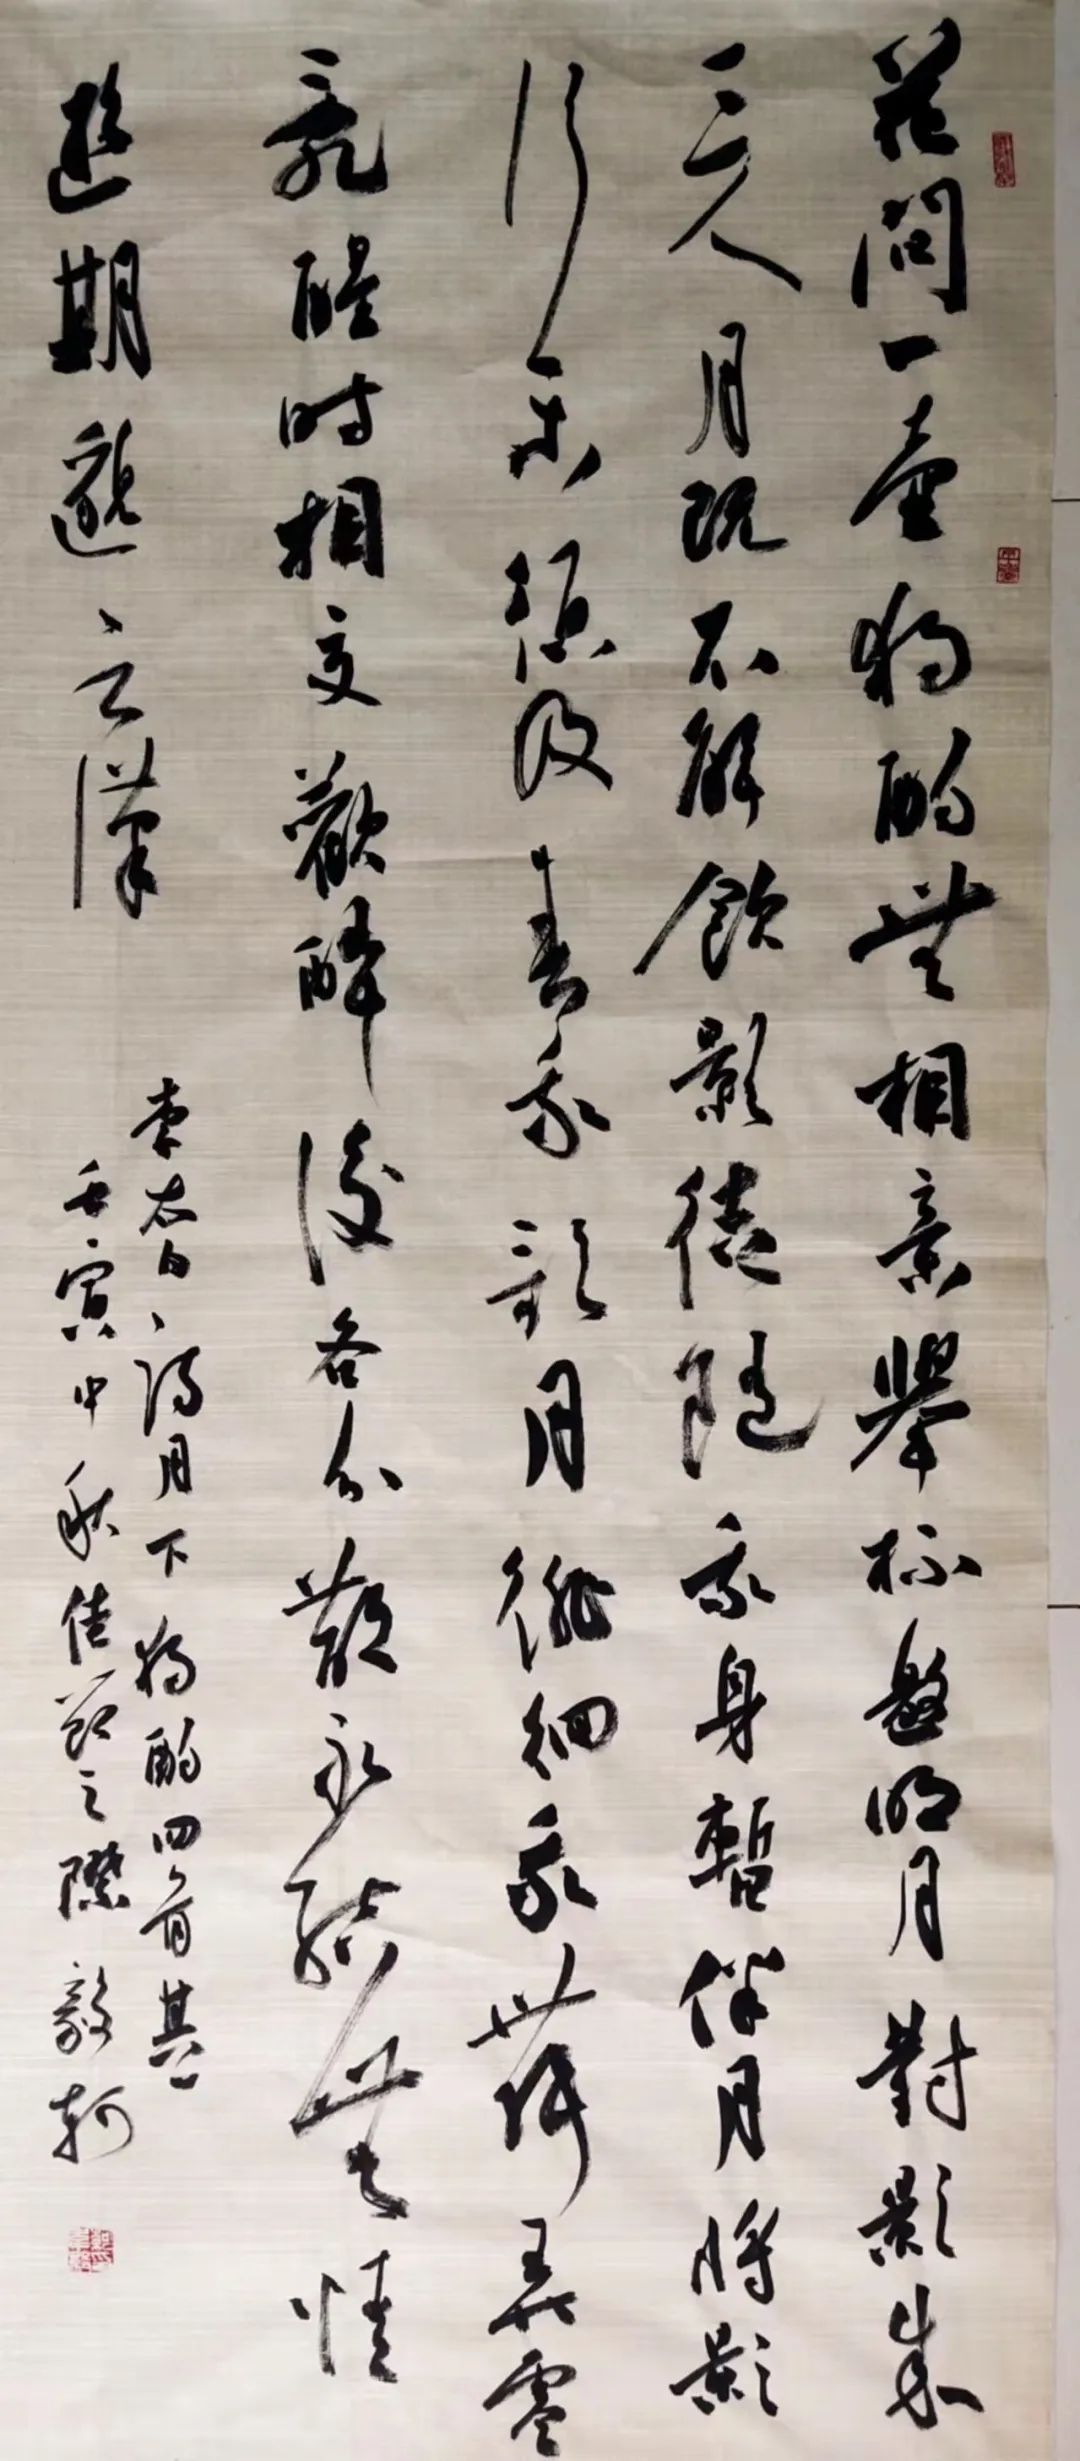 花間一壺獨酌無相親舉杯邀明月對影成
三人月既不解飲影徒隨我身暫伴月將影
行樂須及春我歌月徘徊我舞影零
亂醒時相交歡醉後各分散永結無情
遊期邈云漢
李太白詩月下獨酌四首其一
壬寅中秋佳節之際毅軻